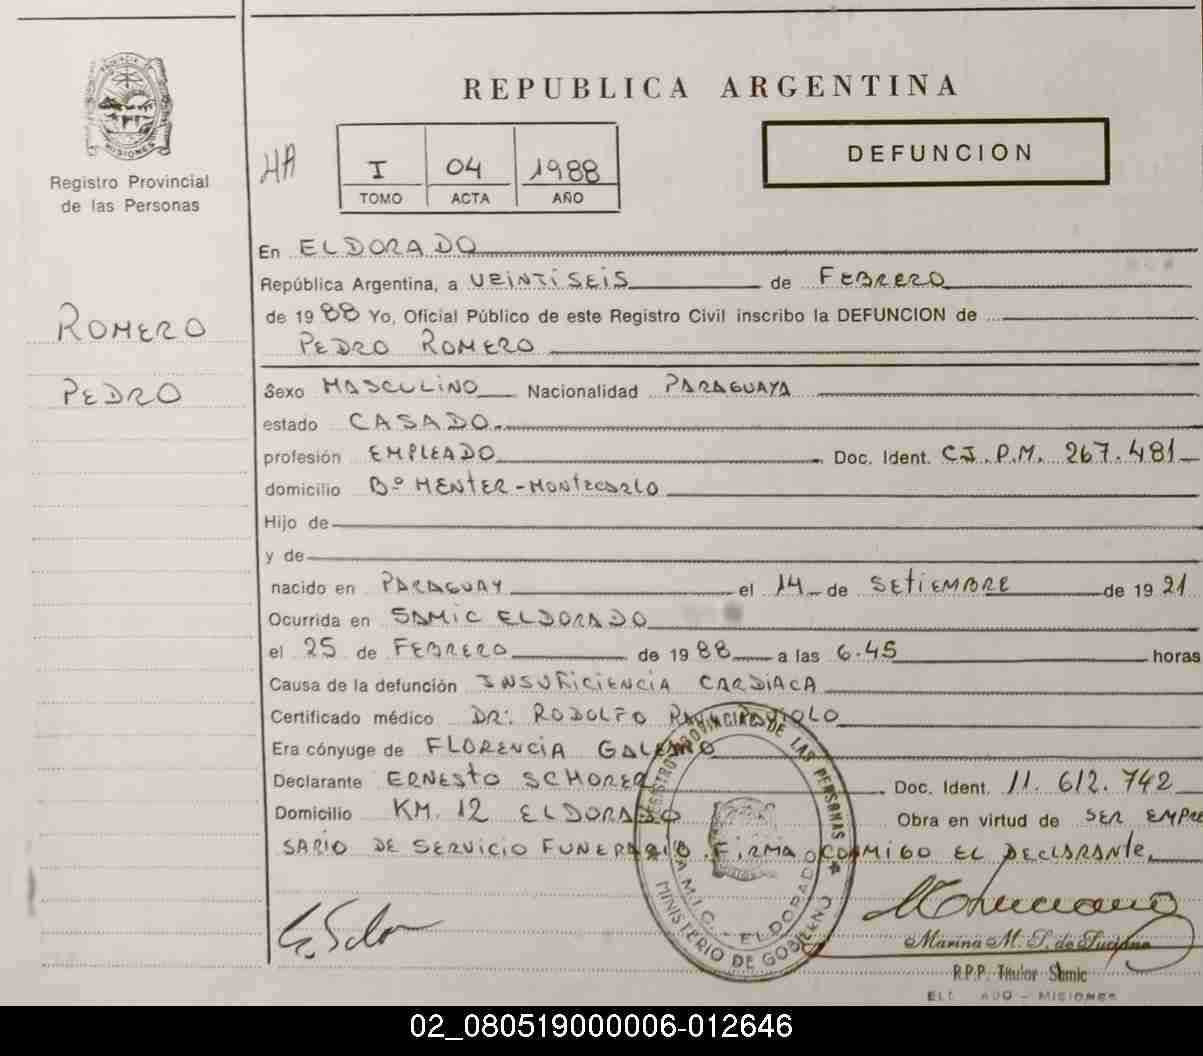 REPUBLICA ARGENTINA
PROVINCIA DE MISIONES
Registro Provincial
de las Personas
HA
I 04 1988
TOMO ACTA AÑO
DEFUNCION
ROMERO
PEDRO
En ELDORADO
República Argentina, a VEINTISEIS de FEBRERO
de 1988 Yo, Oficial Público de este Registro Civil inscribo la DEFUNCION de
PEDRO ROMERO
Sexo MASCULINO Nacionalidad PARAGUAYA
estado CASADO.
profesión EMPLEADO Doc. Ident. CI.P.M. 267.481
domicilio Bº MENTER-MONTECARLO
Hijo de
y de
nacido en PARAGUAY el 14 de SETIEMBRE de 1921
Ocurrida en SAMIC ELDORADO
el 25 de FEBRERO de 1988 a las 6.45 horas
Causa de la defunción INSUFICIENCIA CARDIACA
Certificado médico DR: RODOLFO
Era cónyuge de FLORENCIA GALEANO
Declarante ERNESTO SCHORER Doc. Ident. 11.612.742
Domicilio KM. 12 ELDORADO Obra en virtud de SER EMPRE
SARIO DE SERVICIO FUNERARIO. FIRMA CONMIGO EL DECLARANTE.
REGISTRO PROVINCIAL DE LAS PERSONAS
S.A.M.I.C. - ELDORADO
MINISTERIO DE GOBIERNO
Marina M. S. de Luciano
R.P.P. Titular Samic
ELDORADO - MISIONES
02_080519000006-012646